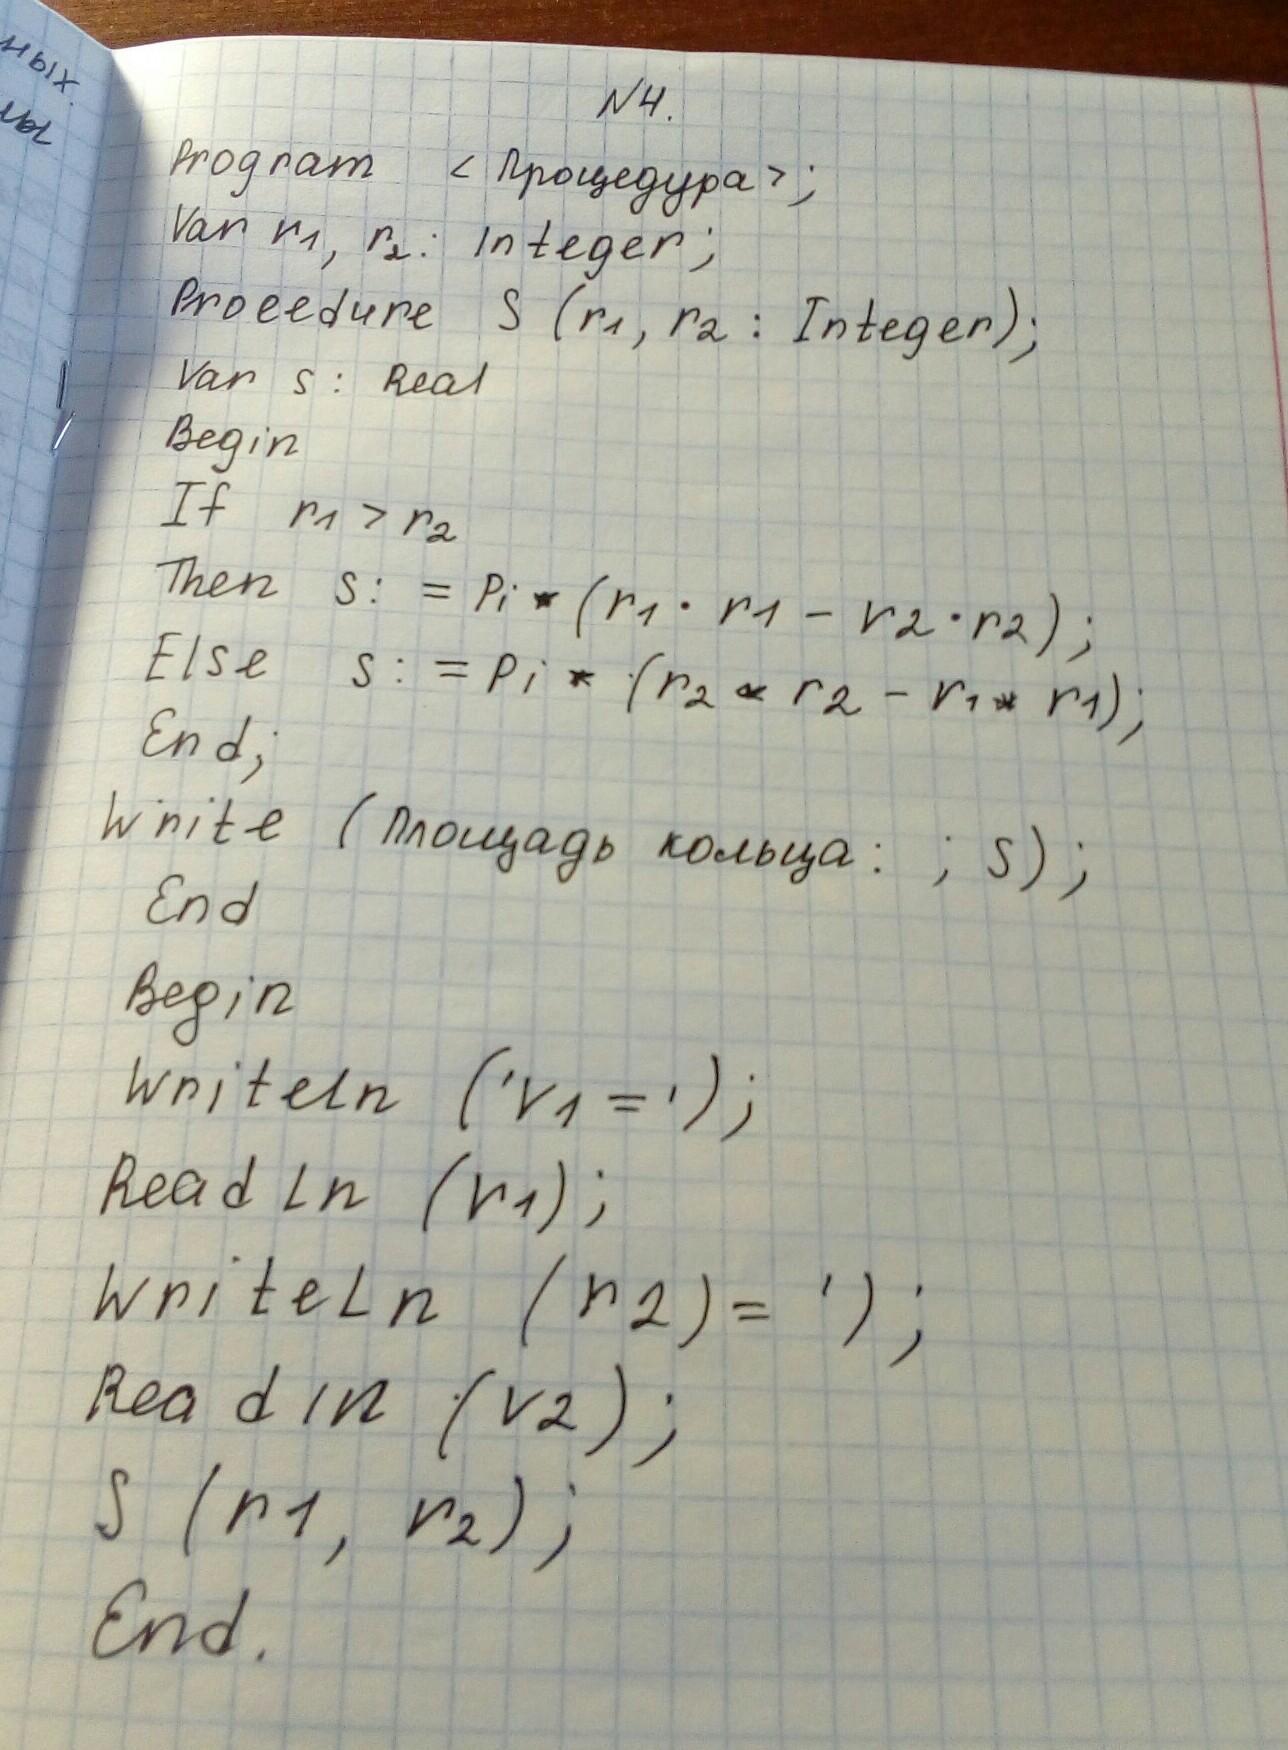 ных.
мы
N4.
Program <Процедура>;
Var r1, r2: Integer;
Procedure S (r1, r2: Integer);
Var s: Real
Begin
If r1 > r2
Then s: = Pi * (r1 · r1 - r2 · r2);
Else s: = Pi * (r2 * r2 - r1 * r1);
End;
Write (Площадь кольца: ; S);
End
Begin
Writeln ('r1=');
Readln (r1);
WriteLn (r2)= ');
Readln (r2);
S (r1, r2);
End.